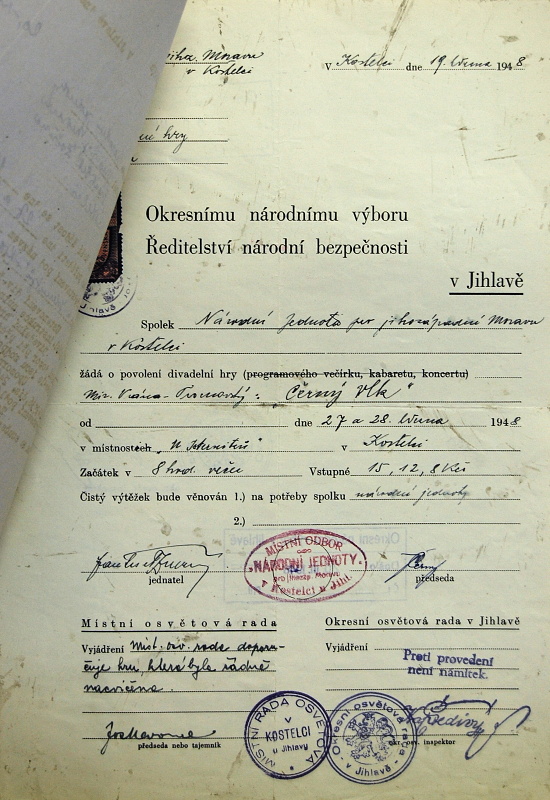 Morava
v Kostelci
V Kostelci dne 19. června 1948
hry
Okresnímu národnímu výboru
Ředitelství národní bezpečnosti
v Jihlavě
Spolek Národní Jednota pro jihozápadní Moravu
v Kostelci
žádá o povolení divadelní hry (programového večírku, kabaretu, koncertu)
"Černý Vlk"
od dne 27 a 28. června 1948
v místnostech v Kostelci
Začátek v 8 hod. večer Vstupné 15, 12, 8 Kčs
Čistý výtěžek bude věnován 1.) na potřeby spolku národní jednoty
2.)
MÍSTNÍ ODBOR
NÁRODNÍ JEDNOTY
pro jihozáp. Moravu
v Kostelci u Jihl.
jednatel
předseda
Místní osvětová rada
Okresní osvětová rada v Jihlavě
Vyjádření Míst. osv. rada doporu-
čuje hru, která byla řádně
nacvičena.
Vyjádření
Proti provedení
není námitek.
MÍSTNÍ RADA OSVĚTOVÁ
V
KOSTELCI
u Jihlavy
Okresní osvětová rada
v Jihlavě
předseda nebo tajemník
okr. osv. inspektor